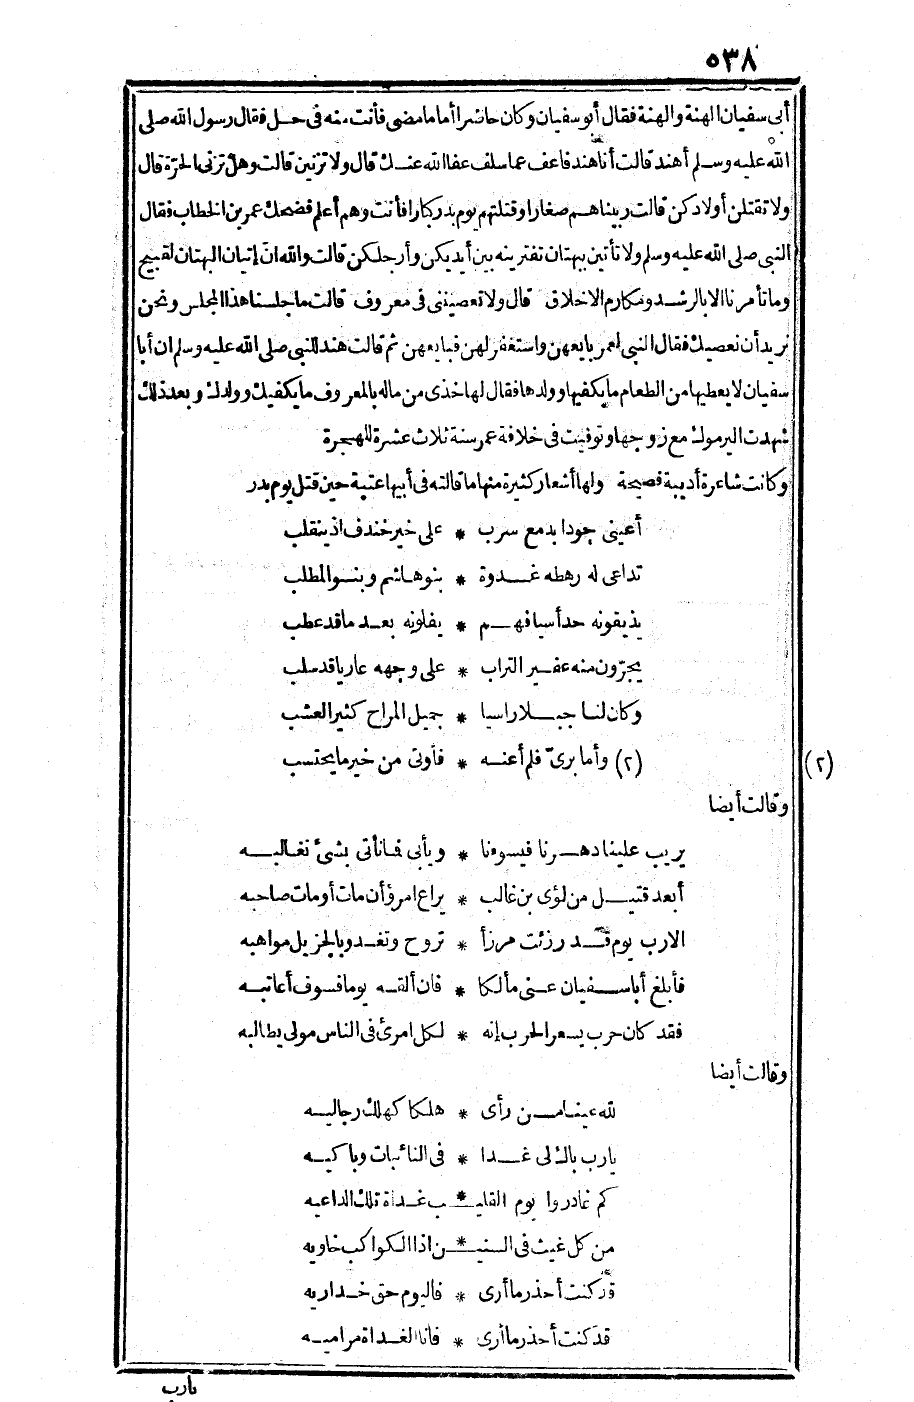 ٥٣٨
أبى سفيان الهنة والهنة فقال أبو سفيان وكان حاضرا أما ما مضى فأنت منه فى حل فقال رسول الله صلى
الله عليه وسلم أهند قالت أنا هند فاعف عما سلف عفا الله عنك قال ولا تزنين قالت وهل تزنى الحرّة قال
ولا تقتلن أولادكن قالت ربيناهم صغارا وقتلتهم يوم بدر كبارا فأنت وهم أعلم فضحك عمر بن الخطاب فقال
النبى صلى الله عليه وسلم ولا تأتين ببهتان تفترينه بين أيديكن وأرجلكن قالت والله ان إتيان البهتان لقبيح
وما تأمرنا الا بالرشد ومكارم الاخلاق قال ولا تعصيننى فى معروف قالت ما جلسنا هذا المجلس ونحن
نريد أن نعصيك فقال النبى لعمر بايعهن واستغفر لهن فبايعهن ثم قالت هند للنبى صلى الله عليه وسلم ان أبا
سفيان لا يعطيها من الطعام ما يكفيها وولدها فقال لها خذى من ماله بالمعروف ما يكفيك وولدك وبعد ذلك
شهدت اليرموك مع زوجها وتوفيت فى خلافة عمر سنة ثلاث عشرة للهجرة
وكانت شاعرة أديبة فصيحة ولها أشعار كثيرة منها ما قالته فى أبيها عتبة حين قتل يوم بدر
أعينى جودا بدمع سرب * على خير خندف اذ ينقلب
تداعى له رهطه غدوة * بنو هاشم وبنو المطلب
يذيقونه حد أسيافهم * يفلونه بعد ما قد عطب
يجرّون منه عفير التراب * على وجهه عاريا قد سلب
وكان لنا جبلا راسيا * جميل المراح كثير العشب
(٢) وأما برىّ فلم أعنه * فأوتى من خير ما يحتسب (٢)
وقالت أيضا
يريب علينا دهرنا فيسوءنا * ويأبى فما نأتى بشئ نغالبه
أبعد قتيل من لؤى بن غالب * يراع امرؤ أن مات أو مات صاحبه
الا رب يوم قد رزئت مرزأ * تروح وتغدو بالجزيل مواهبه
فأبلغ أبا سفيان عنى مألكا * فان ألقه يوما فسوف أعاتبه
فقد كان حرب يسعر الحرب إنه * لكل امرئ فى الناس مولى يطالبه
وقالت أيضا
لله عينا من رأى * هلكا كهلك رجاليه
يا رب باك لى غدا * فى النائبات وباكيه
كم غادروا يوم القليـ * ـب غداة تلك الداعيه
من كل غيث فى السنيـ * ـن اذا الكواكب خاويه
قد كنت أحذر ما أرى * فاليوم حق حذاريه
قد كنت أحذر ما أرى * فانا الغداة مراميه
يارب